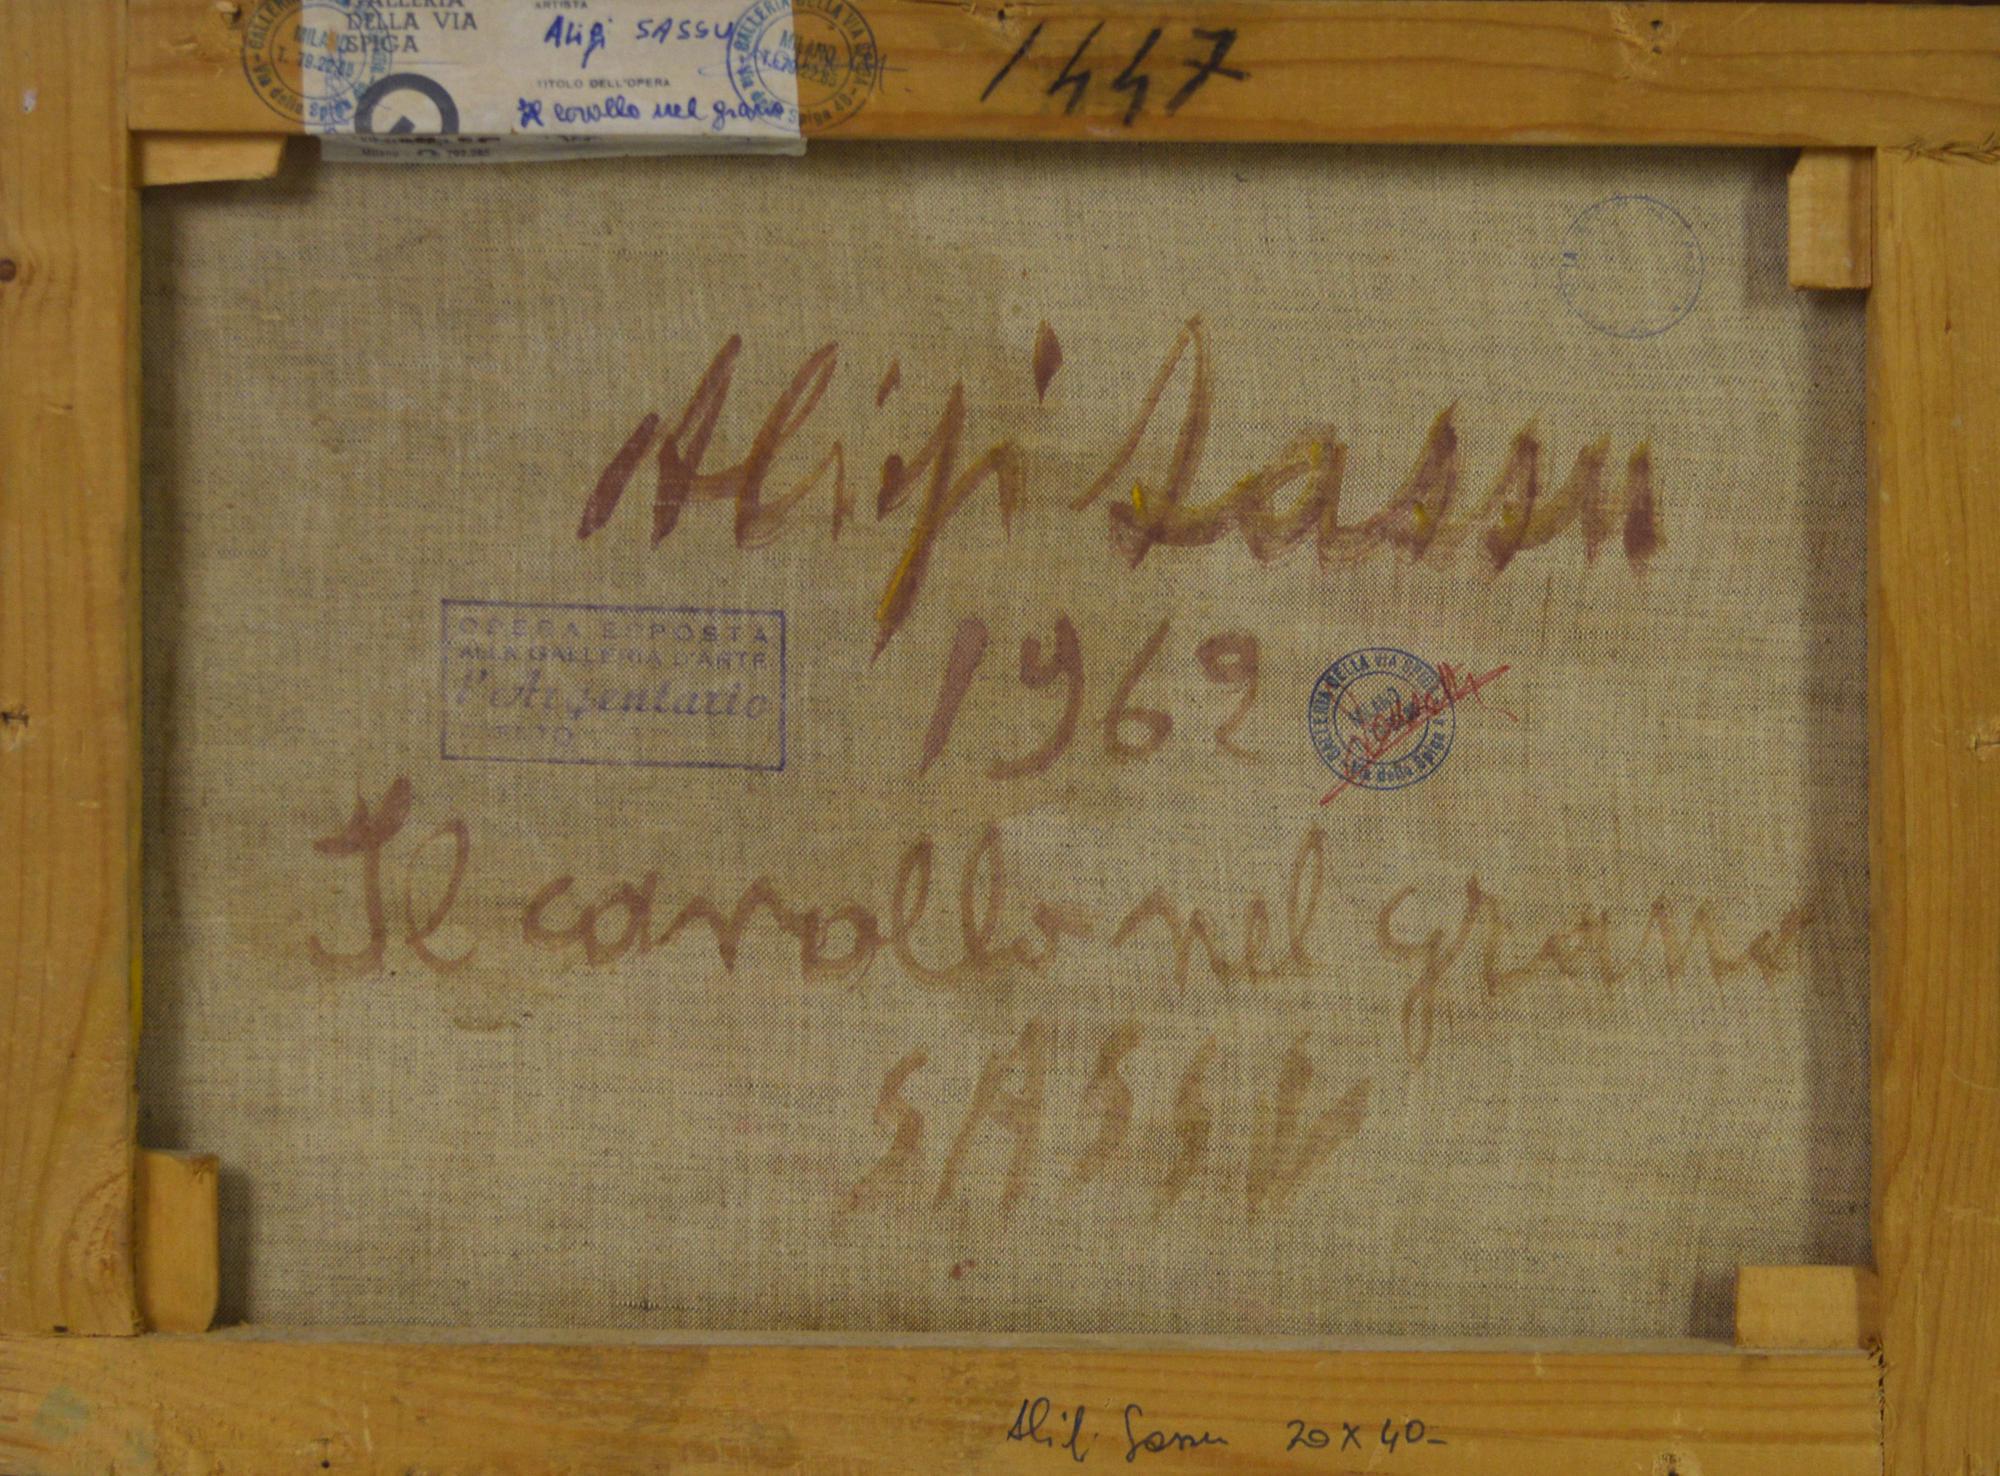 GALLERIA
DELLA VIA
SPIGA
ARTISTA
Aligi SASSU
TITOLO DELL'OPERA
Il cavallo nel grano
MILANO
Via della Spiga
GALLERIA DELLA VIA SPIGA
MILANO
1447
Aligi Sassu
1962
OPERA ESPOSTA
ALLA GALLERIA D'ARTE
l'Argentario
TRENTO
GALLERIA DELLA VIA SPIGA
MILANO
Via della Spiga
Il cavallo nel grano
SASSU
Aligi Sassu 20 x 40-